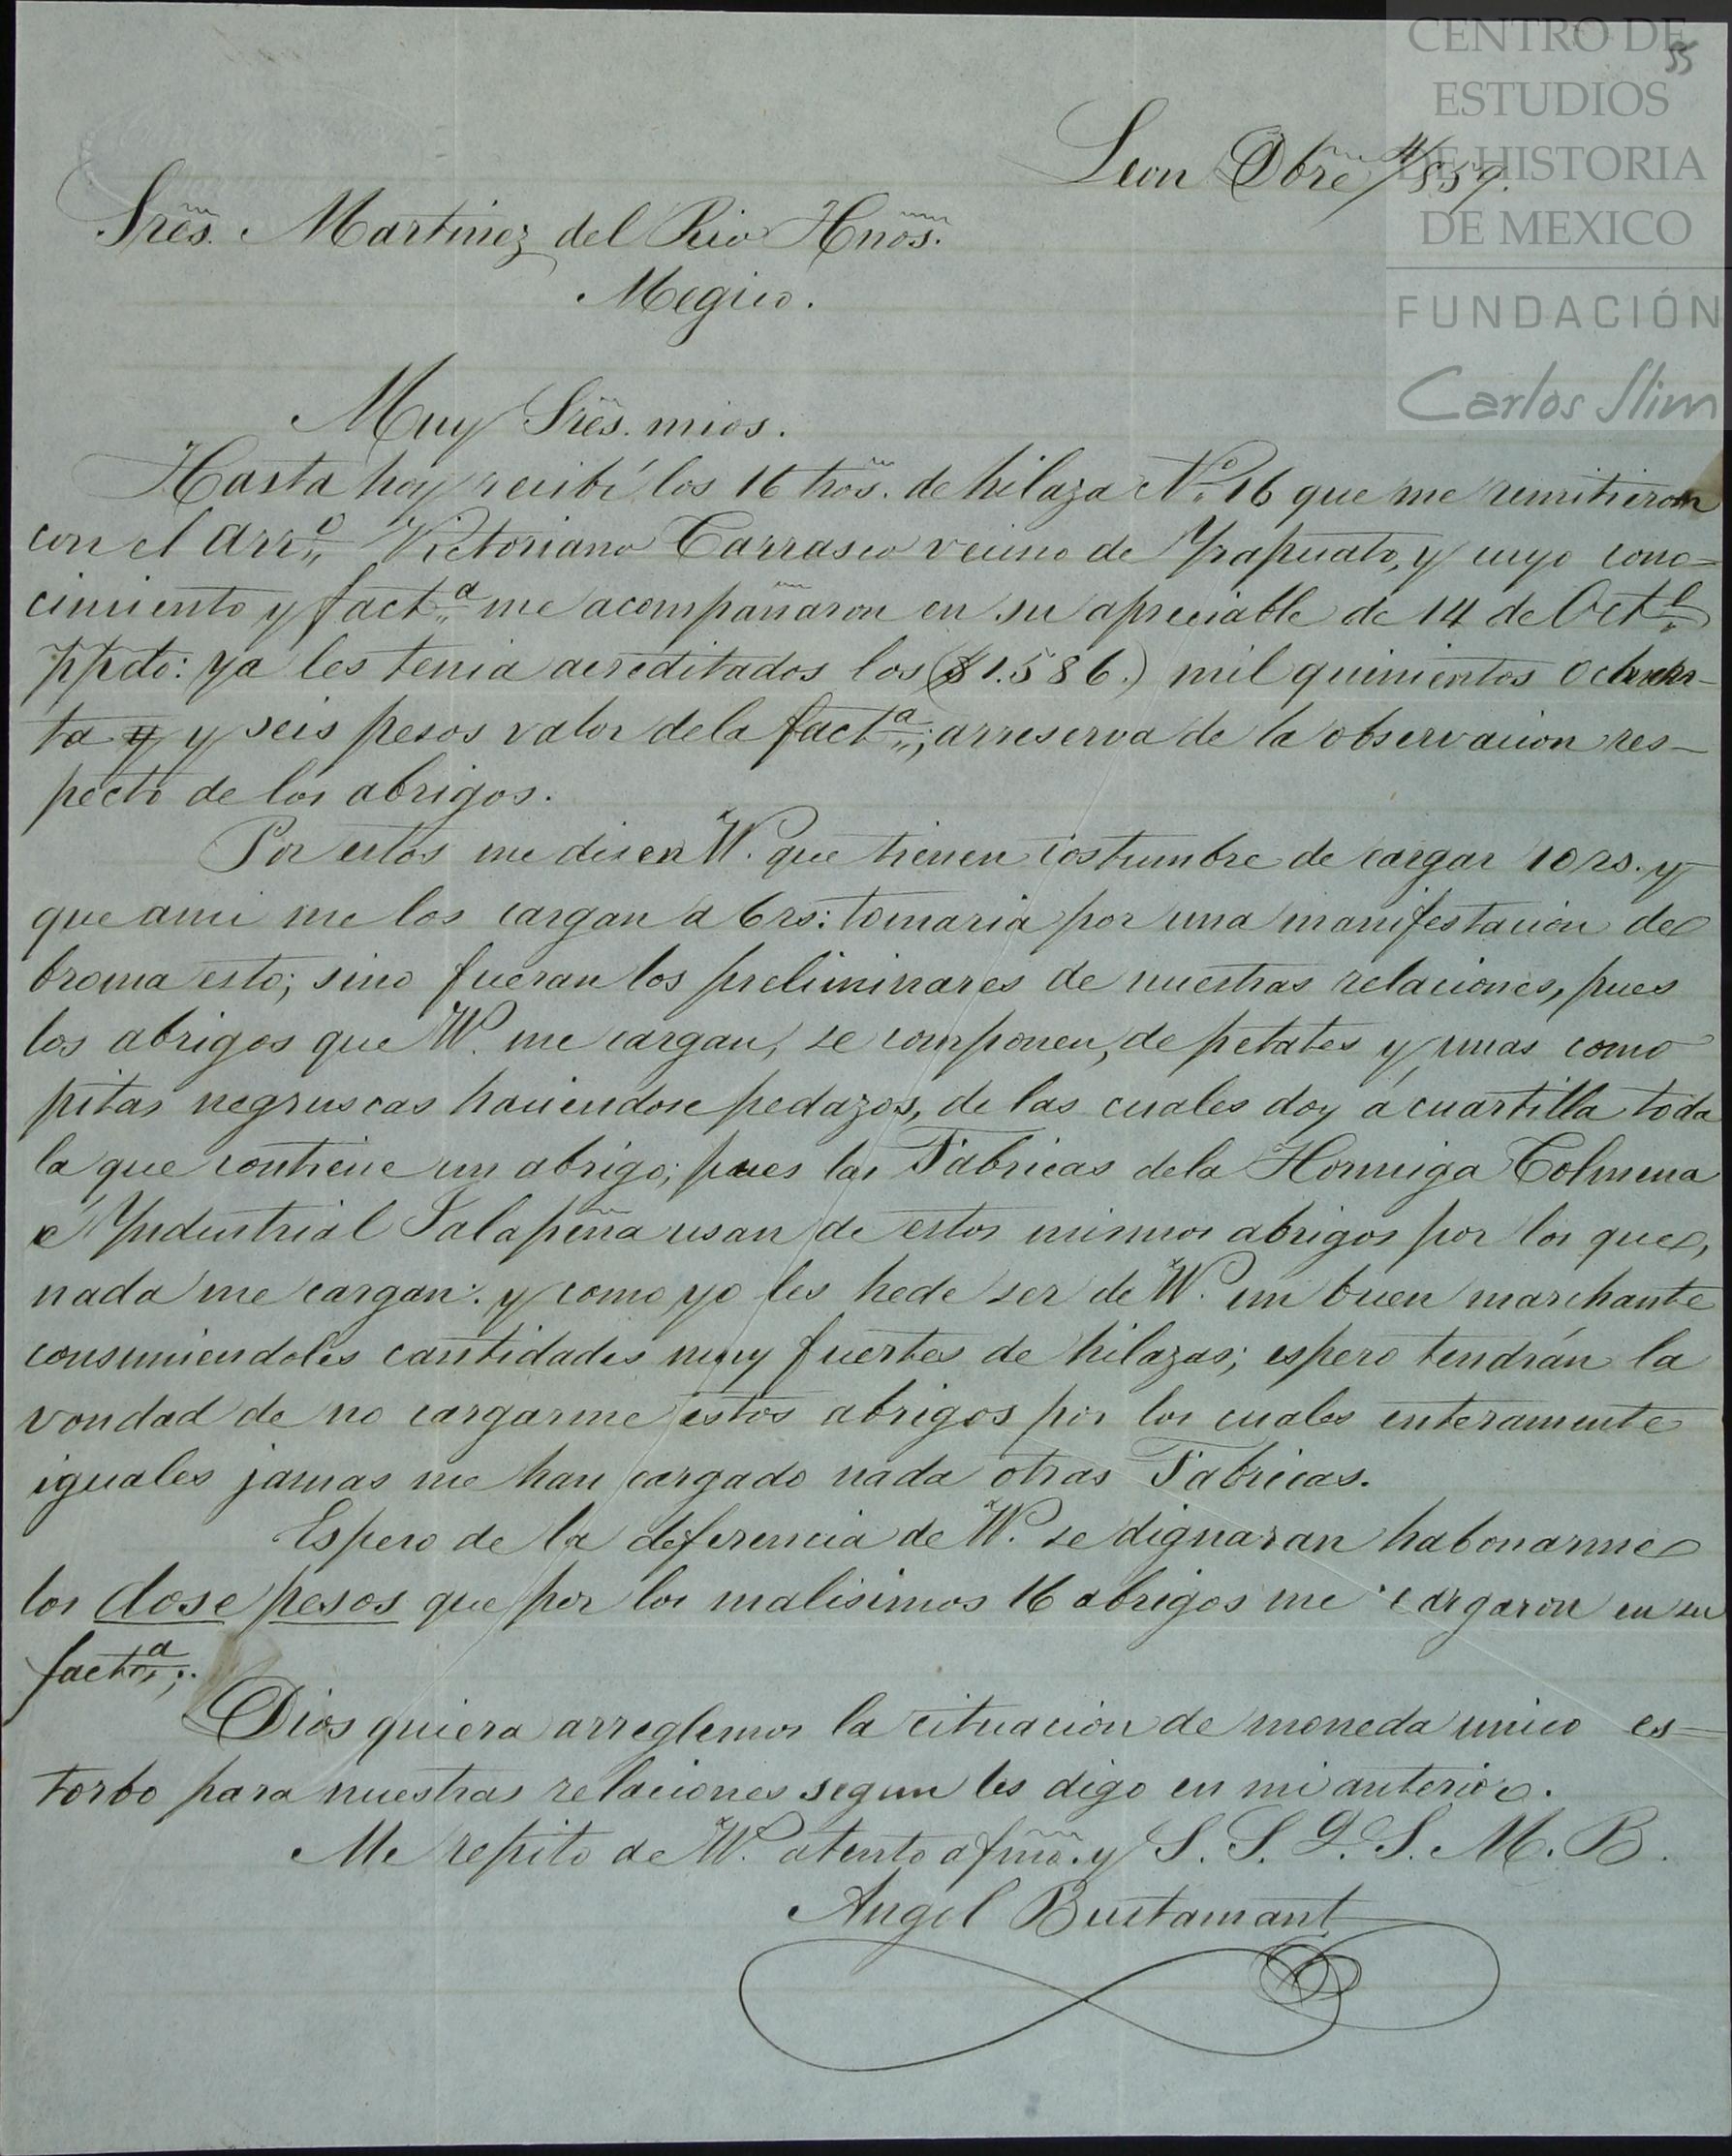 CENTRO DE
ESTUDIOS
DE HISTORIA
DE MEXICO
FUNDACIÓN
Carlos Slim
55
Leon Dbre /859.
Sres. Martinez del Rio Hnos.
Megico.
Muy Sres. mios.
Hasta hoy recibi los 16 tros. de hilaza No. 16 que me remitieron
con el Arro. Victoriano Carrasco vecino de Yrapuato, y cuyo cono=
cimiento y facta. me acompañaron en su apreciable de 14 de Octe.
ppdo: ya les tenia acreditados los ($1.586.) mil quinientos ochen-
ta y y seis pesos valor dela facta.; arreserva de la observacion res-
pecto de los abrigos.
Por estos me dicen VV. que tienen costumbre de cargar 10 rs. y
que ami me los cargan a 6 rs: tomaria por una manifestacion de
broma esto; sino fueran los preliminares de nuestras relaciones, pues
los abrigos que VV. me cargan, se componen, de petates y unas como
pitas negruscas haciendose pedazos, de las cuales doy á cuartilla toda
la que contiene un abrigo; pues las Fabricas dela Hormiga Colmena
é Yndustrial Jalapeña usan de estos mismos abrigos por los que,
nada me cargan: y como yo les hede ser de VV. un buen marchante
consumiendoles cantidades muy fuertes de hilazas; espero tendrán la
vondad de no cargarme estos abrigos por los cuales enteramente
iguales jamas me han cargado nada otras Fabricas.
Espero de la deferencia de VV. se dignaran habonarme
los dose pesos que por los malisimos 16 abrigos me cargaron en su
facta.;.
Dios quiera arreglemos la cituacion de moneda unico es=
torbo para nuestras relaciones segun les digo en mi anterior.
Me repito de VV. atento afmo. y S. S. Q. S. M. B.
Angel Bustamant